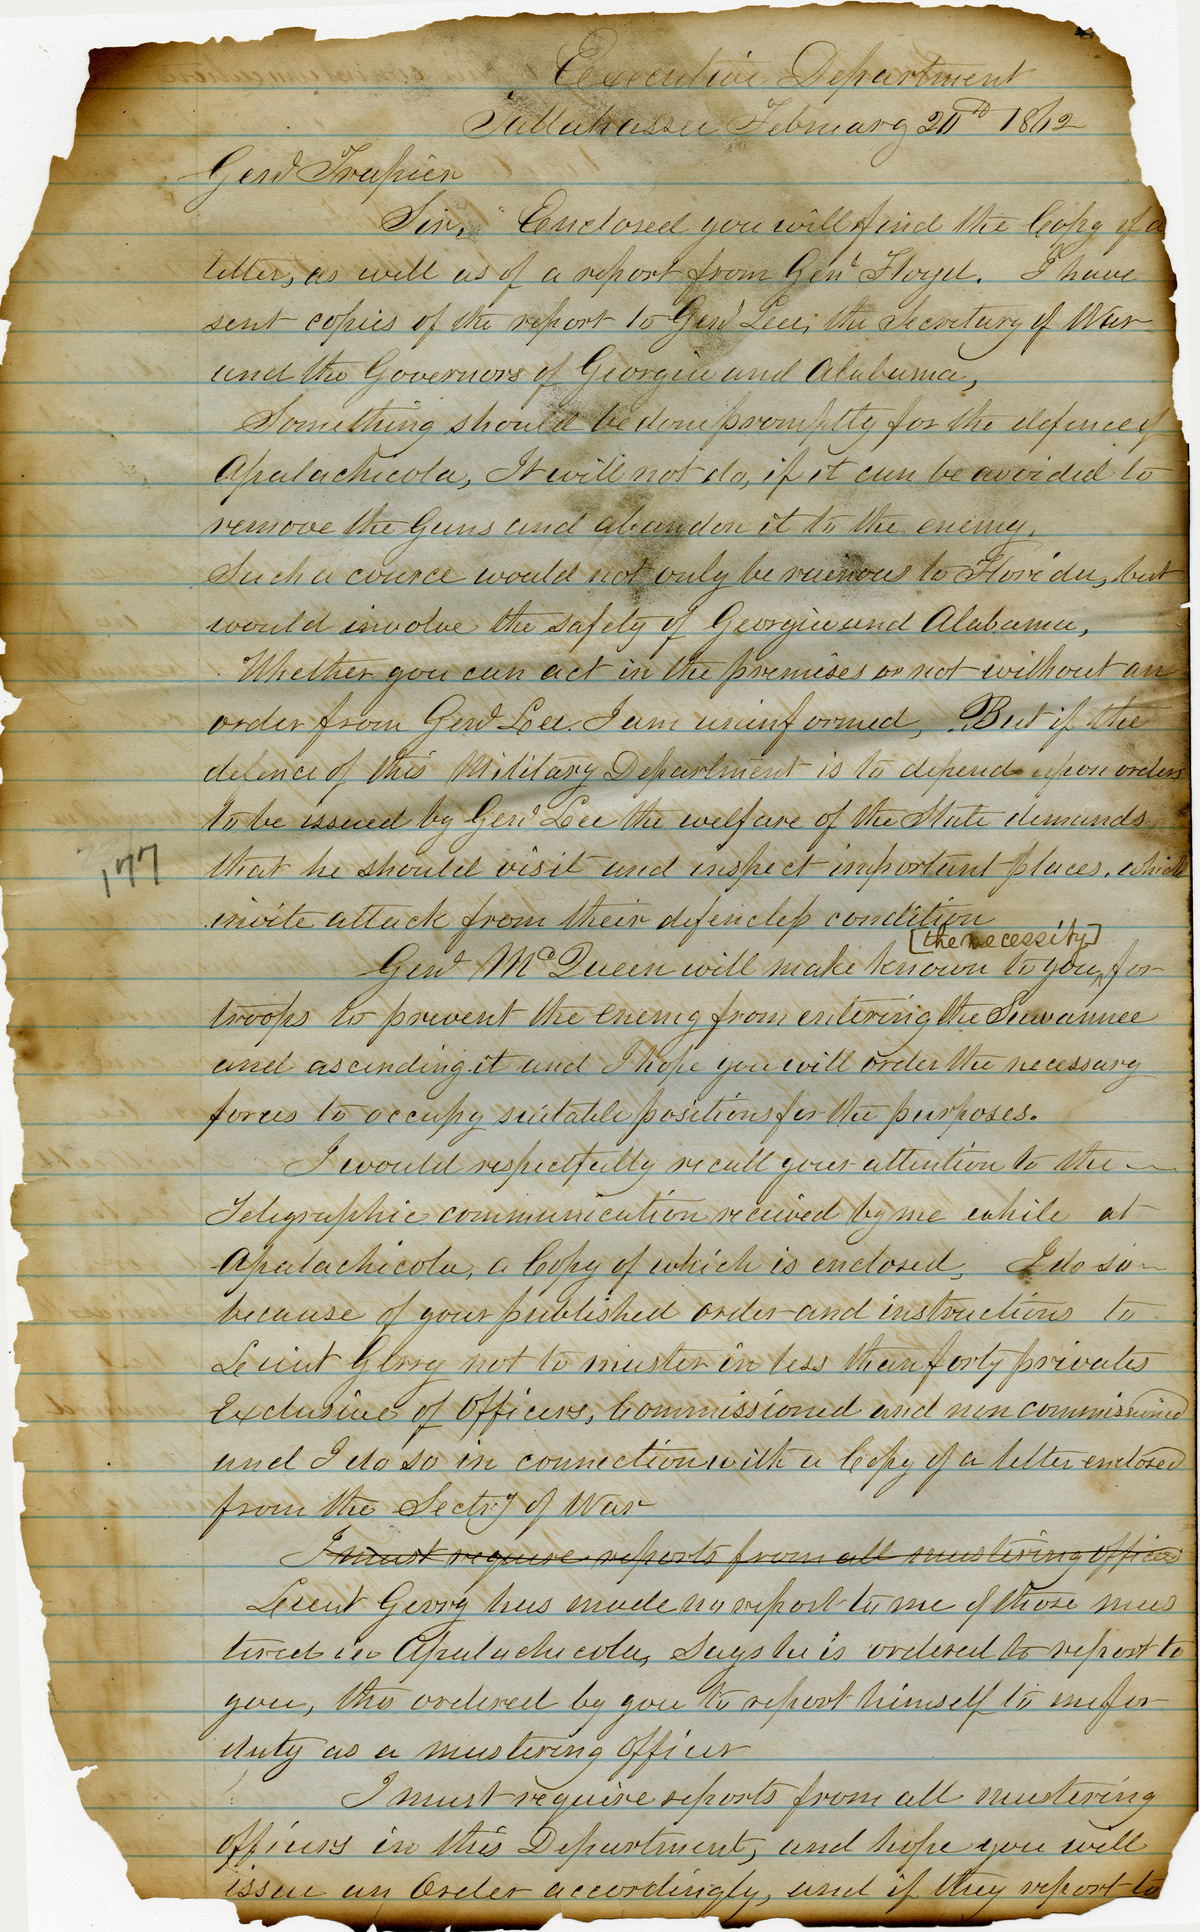 Executive Department
Tallahassee February 20th 1862
Genl Trapier
Sir, Enclosed you will find the Copy of a
letter, as well as of a report from Genl Floyd. I have
sent copies of the report to Genl Lee, the Secretary of War
and the Governors of Georgia and Alabama,
Something should be done promptly for the defence of
Apalachicola, It will not do, if it can be avoided to
remove the Guns and abandon it to the enemy.
Such a cource would not only be ruinous to Florida, but
would involve the safety of Georgia and Alabama,
Whether you can act in the premises or not without an
order from Genl Lee. I am uninformed, But if the
defence of this Military Department is to depend upon orders
to be issued by Genl Lee the welfare of the State demands,
that he should visit and inspect important places, which
177
invite attack from their defenceless condition
[the necessity]
Genl McQueen will make known to you, for
troops to prevent the enemy from entering the Suwannee
and ascending it and I hope you will order the necessary
forces to occupy suitable positions for the purposes.
I would respectfully recall your attention to the
Telegraphic communication received by me while at
Apalachicola, a Copy of which is enclosed, I do so
because of your published order and instructions to
Lieut Gerry not to muster in less than forty privates
Exclusive of Officers, Commissioned and non commissioned
and I do so in connection with a Copy of a letter enclosed
from the Sectry of War
I must require reports from all mustering officers
Lieut Gerry has made no report to me of those mus
tered in Apalachicola, says he is ordered to report to
you, tho ordered by you to report himself to me for
duty as a mustering officer
I must require reports from all mustering
officers in this Department, and hope you will
issue an Order accordingly, and if they report to